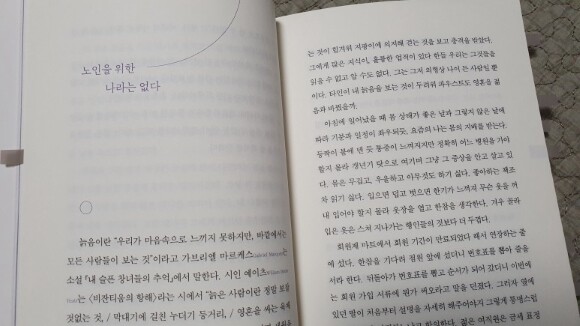 노인을 위한
나라는 없다
늙음이란 "우리가 마음속으로 느끼지 못하지만, 바깥에서는
모든 사람들이 보는 것"이라고 가브리엘 마르케스는
소설 『내 슬픈 창녀들의 추억』에서 말한다. 시인 예이츠
는 〈비잔티움의 항해〉라는 시에서 "늙은 사람이란 정말 보잘
것없는 것, / 막대기에 걸친 누더기 등거리, / 영혼을 싸는 육체
는 것이 힘겨워 지팡이에 의지해 걷는 것을 보고 충격을 받았다.
그에게 많은 지식이, 훌륭한 업적이 있다 한들 우리는 그것들을
읽을 수 없고 알 수도 없다. 그는 그저 외형상 나이 든 사람일 뿐
이다. 타인이 내 늙음을 보는 것이 두려워 파우스트도 영혼을 젊
음과 바꿨을까.
아침에 일어났을 때 몸 상태가 좋은 날과 그렇지 않은 날에
따라 기분과 일정이 좌우되듯, 요즘의 나는 몸의 지배를 받는다.
등짝이 불에 덴 듯 통증이 느껴지지만 정확히 어느 병원을 가야
할지 몰라 갱년기 탓으로 여기며 그냥 그 증상을 안고 살고 있
다. 몸은 무겁고, 우울하고 아무것도 하기 싫다. 좋아하는 책조
차 읽기 싫다. 입으면 덥고 벗으면 한기가 느껴져 무슨 옷을 꺼
내 입어야 할지 몰라 옷장을 열고 한참을 생각한다. 겨우 골라
입은 옷은 스쳐 지나가는 행인들의 것보다 더 두껍다.
회원제 마트에서 회원 기간이 만료되었다 해서 연장하는 줄
에 섰다. 한참을 기다려 직원 앞에 섰더니 번호표를 뽑아 줄을
서라 한다. 뒤돌아가 번호표를 뽑고 순서가 되어 갔더니 이번에
는 회원 가입 서류에 뭔가 써오라고 말을 던졌다. 그러자 옆에
있던 딸이 처음부터 설명을 자세히 해주어야지 그렇게 불평스럽